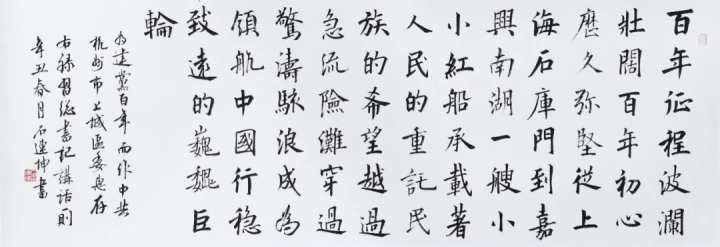 百年征程波瀾
壯闊百年初心
歷久弥堅從上
海石庫門到嘉
興南湖一艘小
小紅船承載著
人民的重託民
族的希望越過
急流險灘穿過
驚濤駭浪成為
領航中國行穩
致遠的巍巍巨
輪
为建黨百年而作中共
杭州市上城區委惠存
右録習總書記講話則
辛丑春月石連坤書